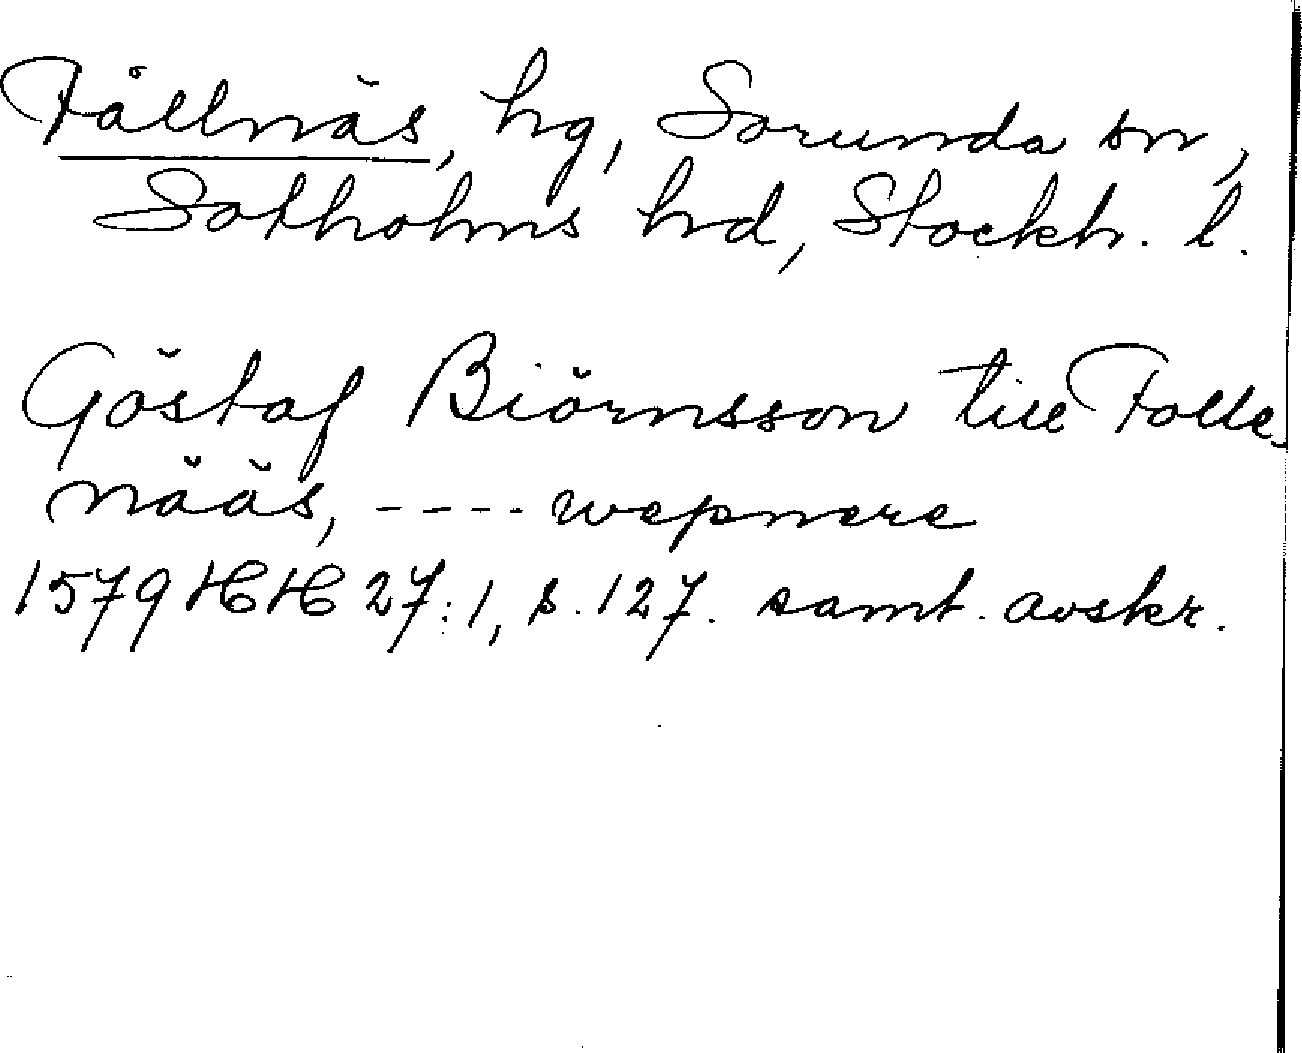 Fållnäs, hg, Sorunda sn,
Sotholms hd, Stockh. l.
Göstaf Biörnsson till Folle-
nääs, ---- wepnere
1579 HH 27:1, s. 127. samt. avskr.